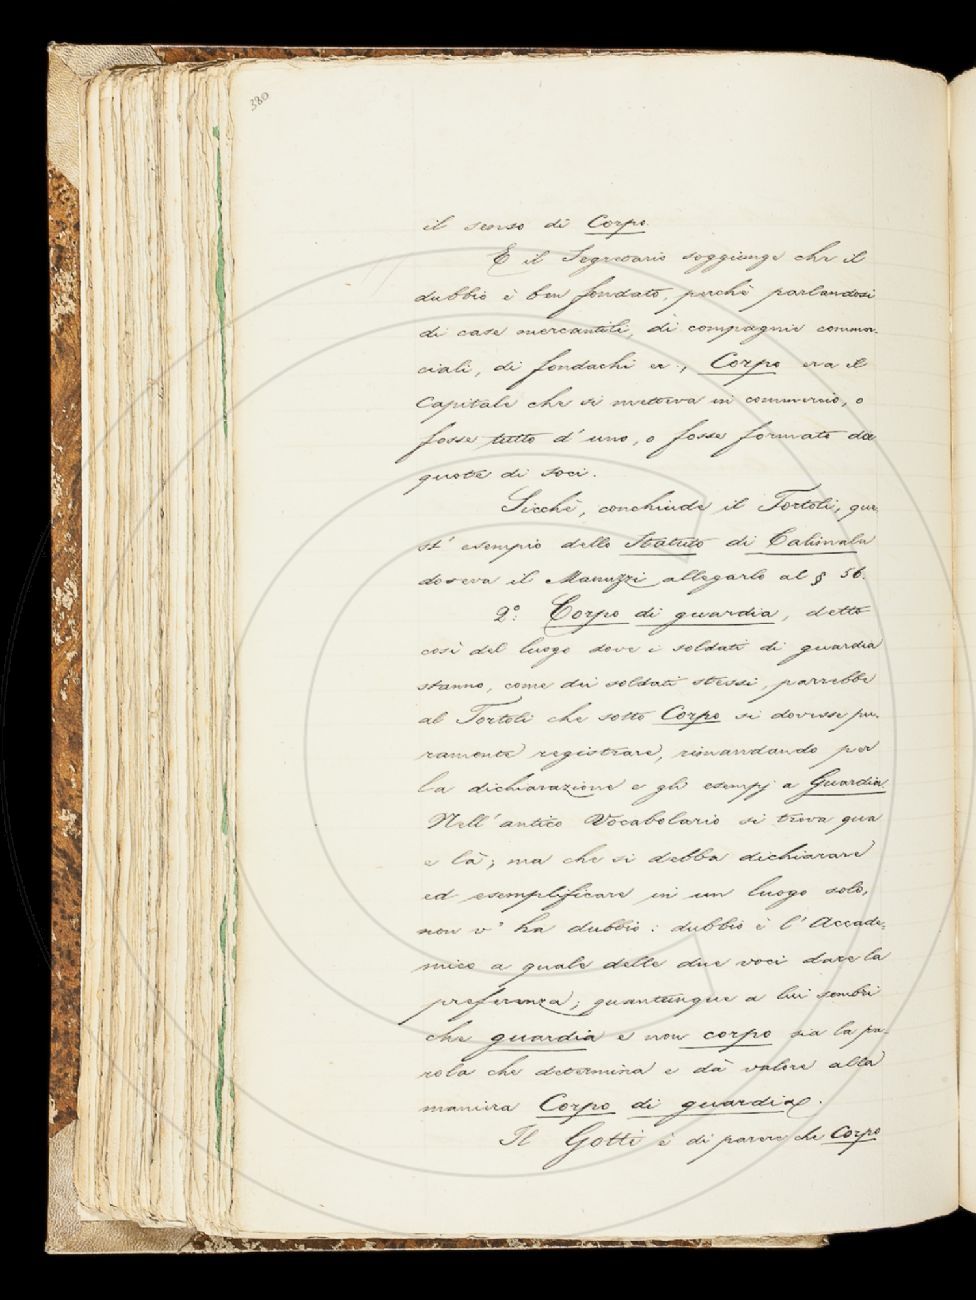 380
il senso di Corpo.
E il Segretario soggiunge che il
dubbio è ben fondato, perchè parlandosi
di case mercantili, di compagnie commer-
ciali, di fondachi ec:, Corpo era il
Capitale che si metteva in commercio, o
fosse tutto d'uno, o fosse formato da
quote di soci.
Sicchè, conchiude il Tortoli, que-
st'esempio dello Statuto di Calimala
doveva il Manuzzi allegarlo al § 56.
2°: Corpo di guardia, detto
così del luogo dove i soldati di guardia
stanno, come dei soldati stessi, parrebbe
al Tortoli che sotto Corpo si dovesse pu-
ramente registrare, rimandando per
la dichiarazione e gli esempj a Guardia.
Nell'antico Vocabolario si trova qua
e là; ma che si debba dichiarare
ed esemplificare in un luogo solo,
non v'ha dubbio: dubbio è l'Accade-
mico a quale delle due voci dare la
preferenza; quantunque a lui sembri
che guardia e non corpo sia la pa-
rola che determina e dà valore alla
maniera Corpo di guardia.
Il Gotti è di parere che Corpo